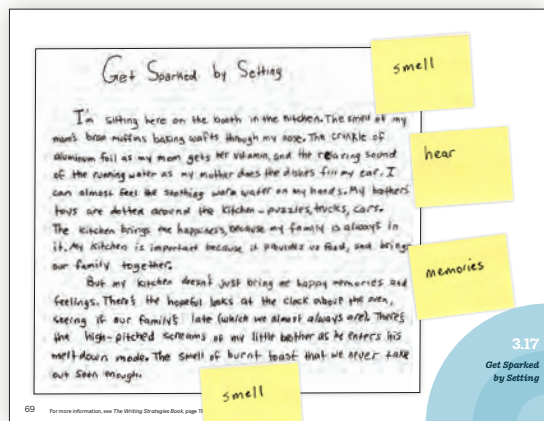 Get Sparked by Setting
I'm sitting here on the booth in the kitchen. The smell of my
mom's bran muffins baking wafts through my nose. The crinkle of
aluminum foil as my mom gets her vitamin, and the relaxing sound
of the running water as my mother does the dishes fill my ear. I
can almost feel the soothing warm water on my hands. My bothers
toys are dotten around the kitchen - puzzles, trucks, cars.
The kitchen brings me happiness, because my family is always in
it. My kitchen is important because it provides us food, and brings
our family together.
But my kitchen doesn't just bring me happy memories and
feelings. There's the hopeful looks at the clock above the oven,
seeing if our family's late (which we almost always are). There's
the high-pitched screams of my little bother as he enters his
melt down mode. The smell of burnt toast that we never take
out soon enough.
smell
hear
memories
smell
3.17
Get Sparked
by Setting
69
For more information, see The Writing Strategies Book, page